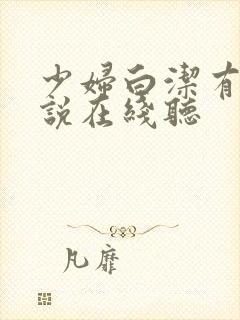 少婦白潔有
說在綫聽
凡靡